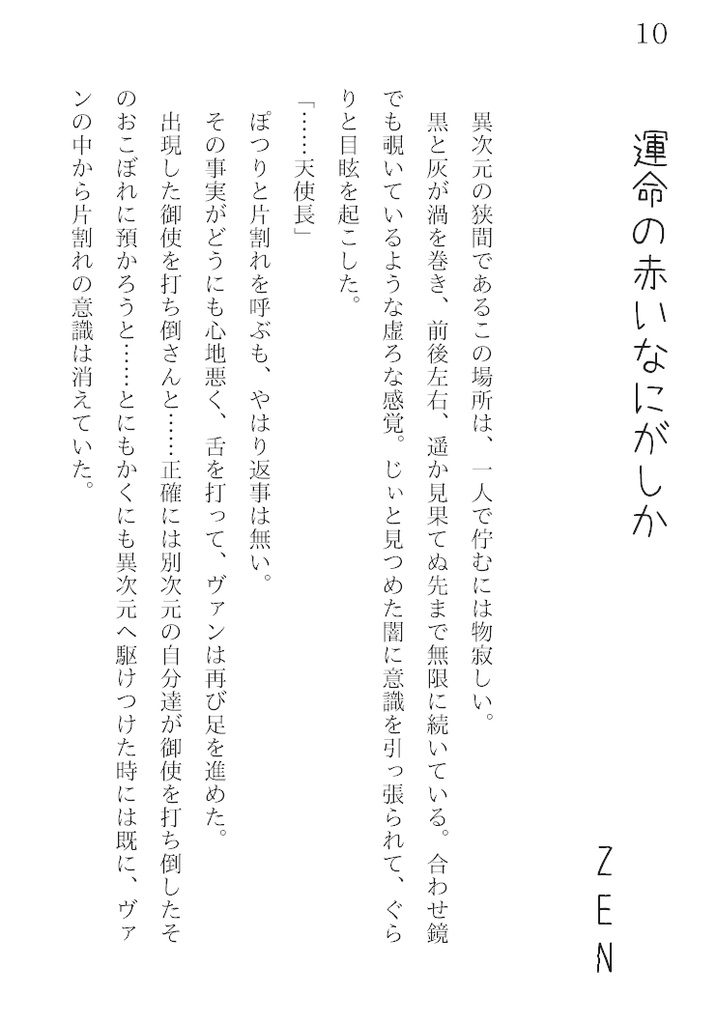 10
運命の赤いなにがしか
ZEN
異次元の狭間であるこの場所は、一人で佇むには物寂しい。
黒と灰が渦を巻き、前後左右、遥か見果てぬ先まで無限に続いている。合わせ鏡
でも覗いているような虚ろな感覚。じぃと見つめた闇に意識を引っ張られて、ぐら
りと目眩を起こした。
「……天使長」
ぽつりと片割れを呼ぶも、やはり返事は無い。
その事実がどうにも心地悪く、舌を打って、ヴァンは再び足を進めた。
出現した御使を打ち倒さんと……正確には別次元の自分達が御使を打ち倒したそ
のおこぼれに預かろうと……とにもかくにも異次元へ駆けつけた時には既に、ヴァ
ンの中から片割れの意識は消えていた。